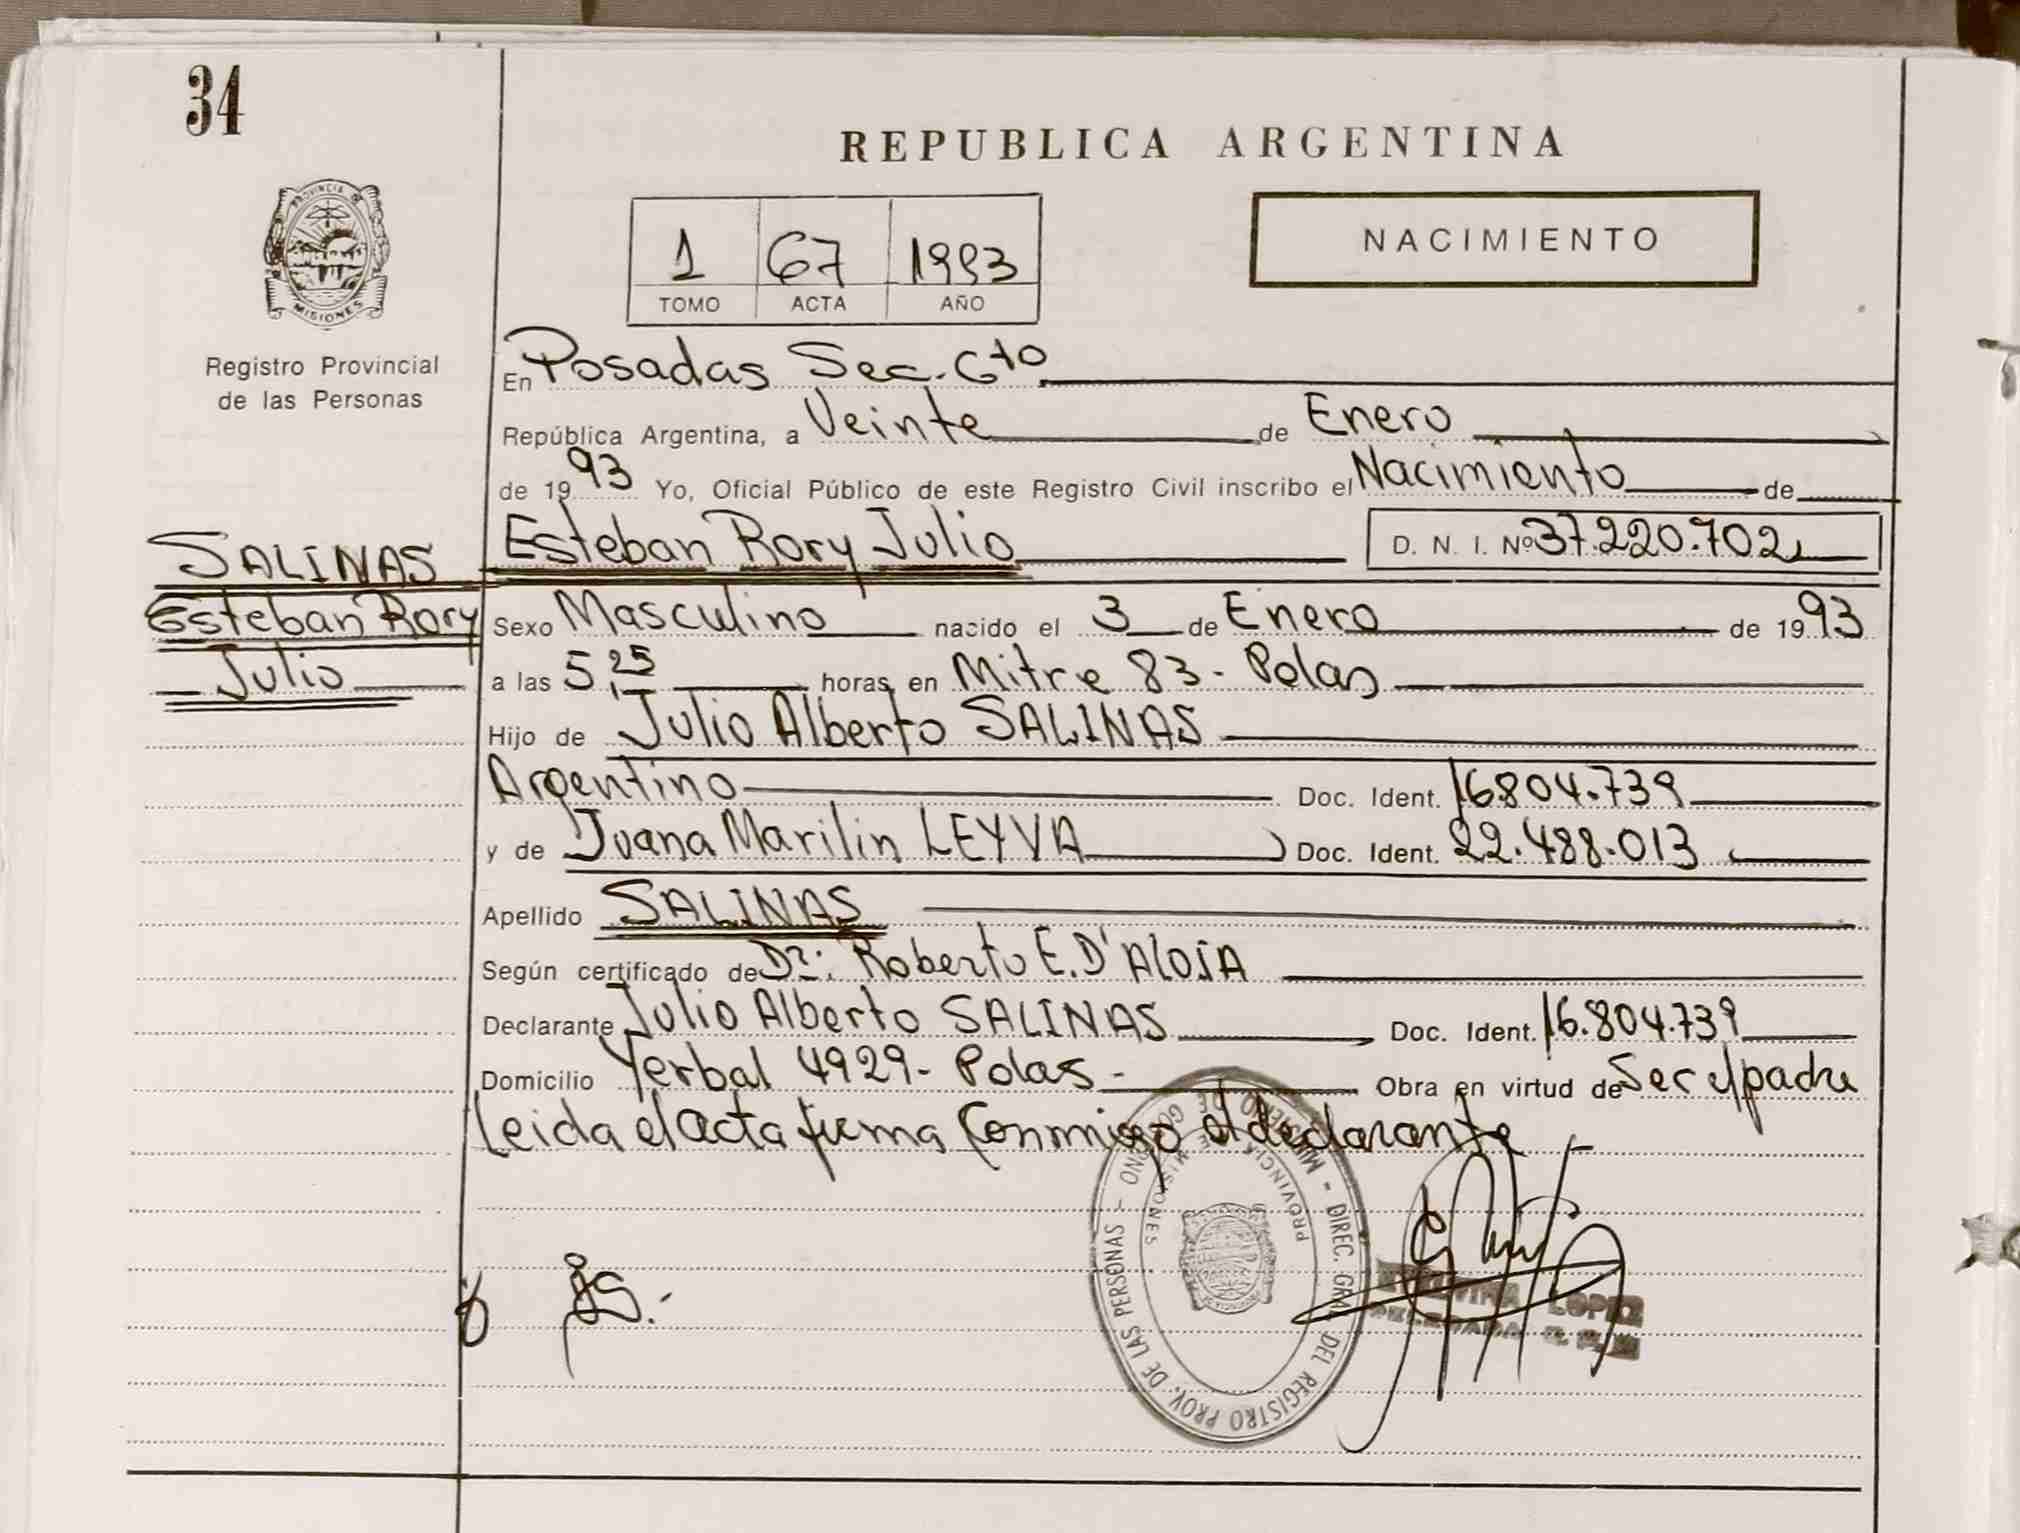 34
REPUBLICA ARGENTINA
PROVINCIA DE
MISIONES
1 67 1993
TOMO ACTA AÑO
NACIMIENTO
Registro Provincial
de las Personas
En Posadas Sec. 6to
República Argentina, a Veinte de Enero
de 1993 Yo, Oficial Público de este Registro Civil inscribo el Nacimiento de
SALINAS
Esteban Rory
Julio
Esteban Rory Julio D. N. I. Nº 37.220.702
Sexo Masculino nacido el 3 de Enero de 1993
a las 5,25 horas, en Mitre 83 - Pdas
Hijo de Julio Alberto SALINAS
Argentino Doc. Ident. 16.804.739
y de Juana Marilin LEYVA Doc. Ident. 22.488.013
Apellido SALINAS
Según certificado de Dr. Roberto E. D'ALOIA
Declarante Julio Alberto SALINAS Doc. Ident. 16.804.739
Domicilio Yerbal 4929 - Pdas - Obra en virtud de Ser el padre
Leida el acta firma conmigo el declarante
MINISTERIO DE GOBIERNO - DIREC. GRAL DEL REGISTRO PROV. DE LAS PERSONAS -
PROVINCIA DE MISIONES
LOPEZ